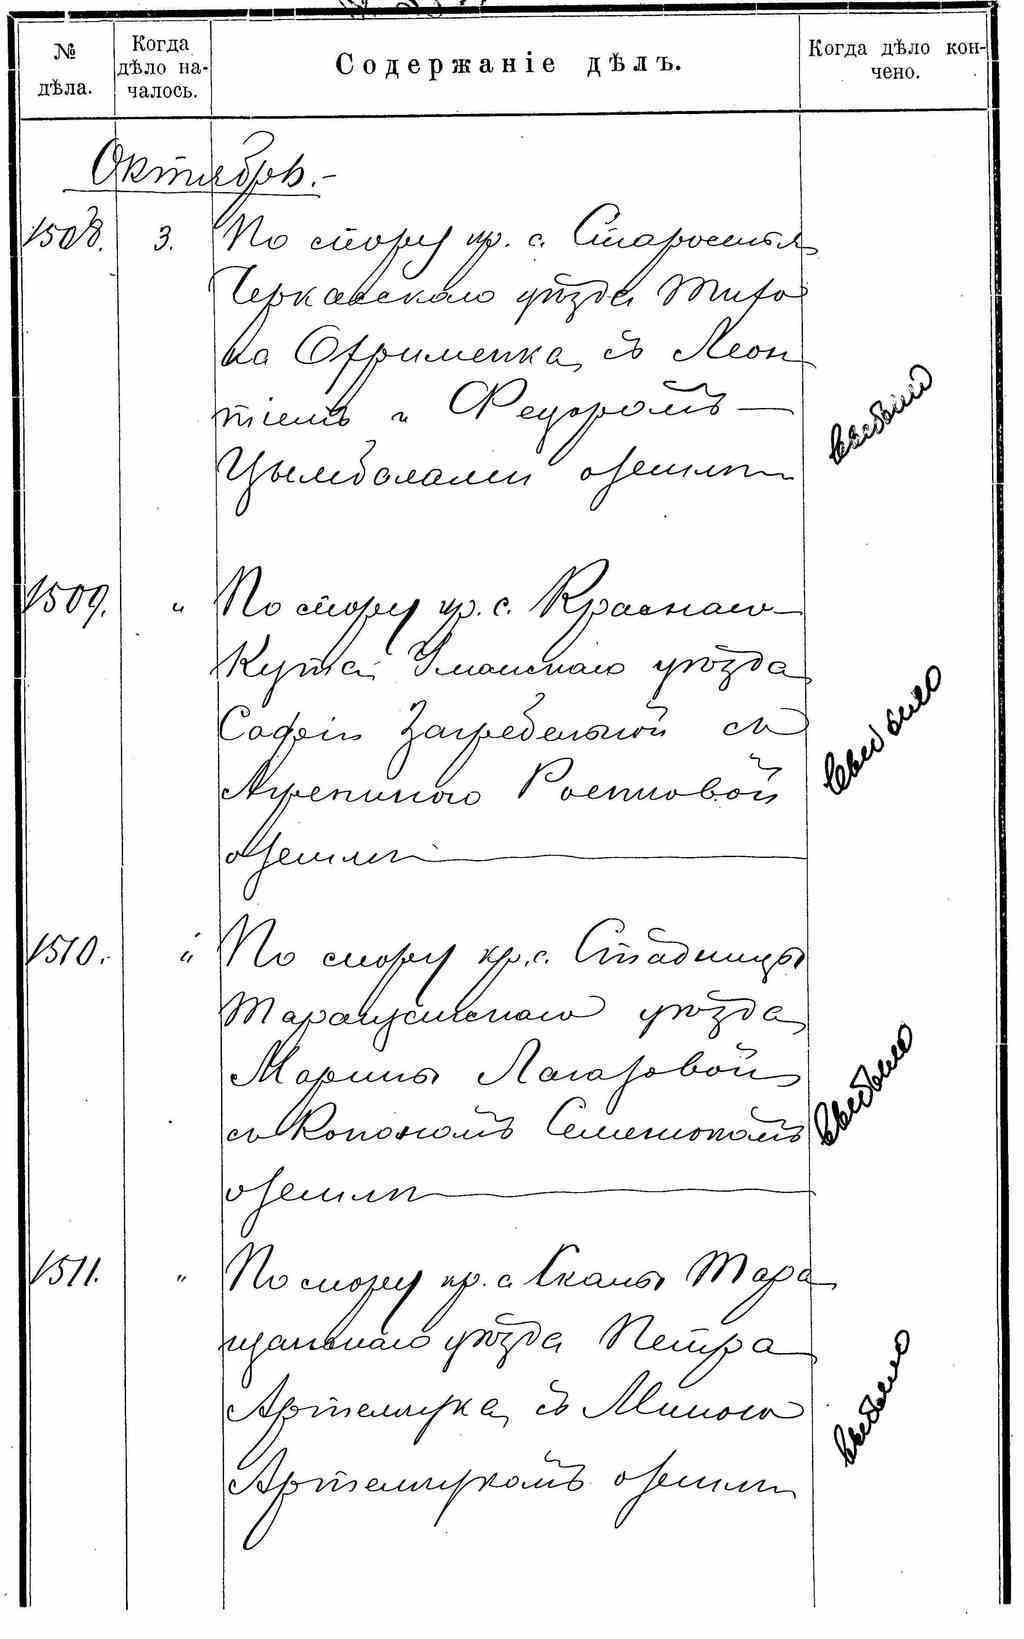 № дѣла.
Когда дѣло на-
чалось.
Содержаніе дѣлъ.
Когда дѣло кон-
чено.
Октябрь.-
1508. 3. По спору кр. с. Староселья
Черкасскаго уѣзда Тихо
на Охрименка, съ Леон
тіемъ и Федоромъ —
Цымбалами о землѣ
выбыло
1509. " По спору кр. с. Краснаго
Кута Уманскаго уѣзда
Софіи Загребельной съ
Агрепиною
о землѣ
выбыло
1510. " По спору кр. с. Стадницы
Таращанскаго уѣзда
Марины Лазаровой
съ Конономъ
о землѣ
выбыло
1511. " По спору кр. с. Тара
щанскаго уѣзда Петра
Артемчука, съ Миною
Артемчукомъ о землѣ
выбыло